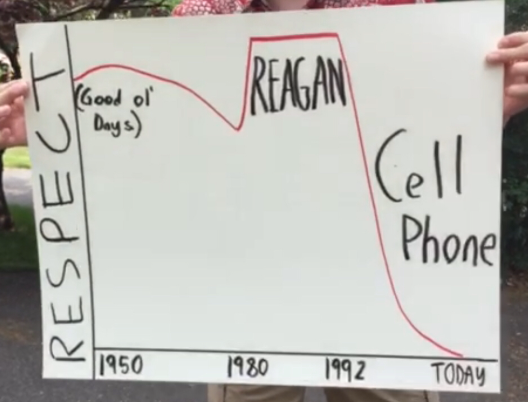 RESPECT
(Good ol'
Days)
REAGAN
Cell
Phone
1950 1980 1992 TODAY